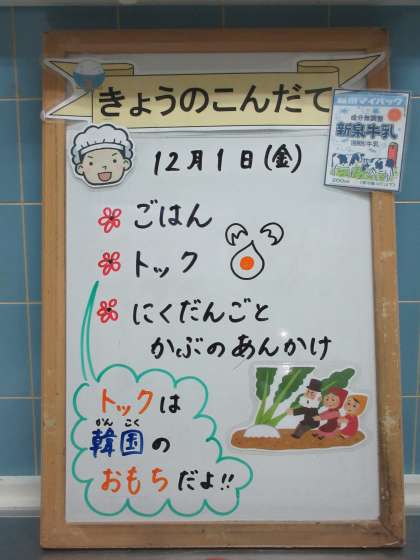 きょうのこんだて
12月1日(金)
成分無調整
新泉牛乳
200ml
ごはん
トック
にくだんごと
かぶのあんかけ
トックは
韓国の
かんこく
おもちだよ!!